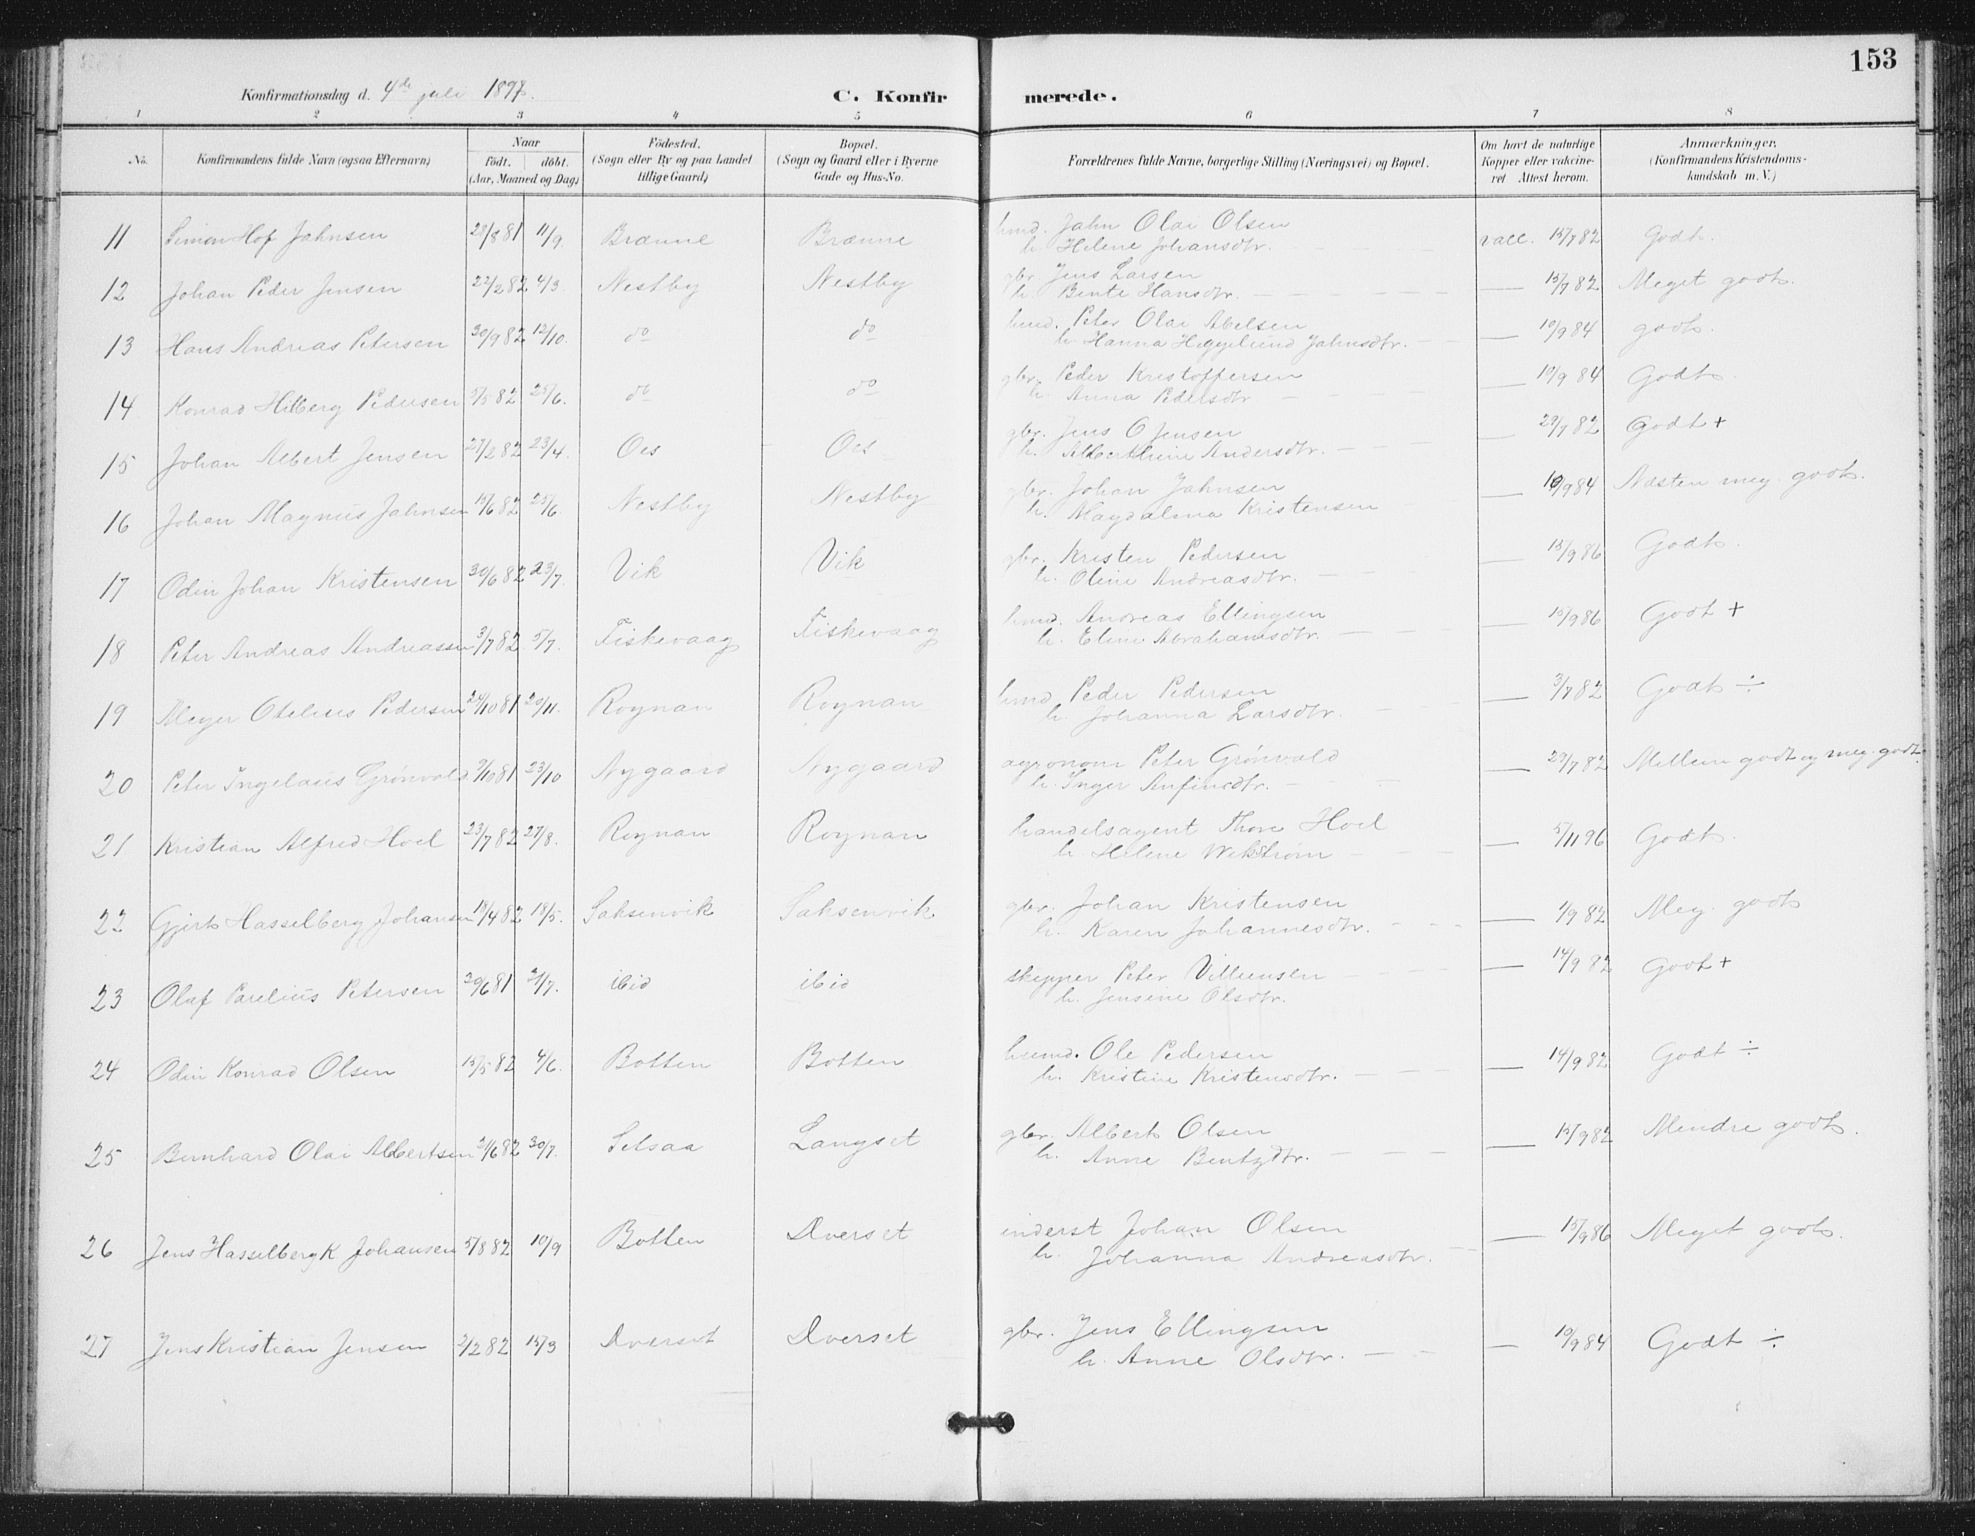 153
Konfirmationsdag d. 4de juli 1897.
C. Konfirmerede.
1 2 3 4 5 6 7 8
No. Konfirmandens fulde Navn (ogsaa Efternavn) Naar födt. döbt. (Aar, Maaned og Dag) Födested. (Sogn eller By og paa Landet tillige Gaard) Bopæl. (Sogn og Gaard eller i Byerne Gade og Hus-No. Forældrenes fulde Navne, borgerlige Stilling (Næringsvei) og Bopæl. Om havt de naturlige Kopper eller vakcineret Attest herom. Anmærkninger. (Konfirmandens Kristendomskundskab m. V.)
11 Simon Hof Jahnsen 28/8 81 11/9. Brænne Brænne hmd. Jahn Olai Olsen vacc. 15/7 82 Godt.
h. Helene Johansdtr.
12 Johan Peder Jensen 22/2 82 4/3. Nestby Nestby gbr. Jens Larsen — 15/7 82 Meget godt.
h. Bente Hansdtr.
13 Hans Andreas Petersen 30/9 82 12/10. do do hmd. Peter Olai Abelsen — 10/9 84 godt.
h. Hanna Heggelund Jahnsdtr.
14 Konrad Hilberg Pedersen 5/5 82 25/6. do do gbr. Peder Kristoffersen — 10/9 84 Godt.
h. Anna Pedersdtr
15 Johan Albert Jensen 27/2 82 23/4. Oes Oes gbr. Jens O Jensen — 29/7 82 Godt +
h. Alberthine Andersdtr.
16 Johan Magnus Jahnsen 15/6 82 25/6. Nestby Nestby gbr. Johan Jahnsen — 10/9 84 Næsten meg. godt.
h. Magdalena Kristensen
17 Odin Johan Kristensen 30/6 82 23/7. Vik Vik gbr. Kristen Pedersen — 15/9 86 Godt.
h. Oline Andreasdtr.
18 Peter Andreas Andreassen 3/7 82 5/7. Fiskevaag Fiskevaag hmd. Andreas Ellingsen — 15/9 86 Godt +
h. Eline Abrahamsdtr.
19 Meyer Otelius Pedersen 24/10 81 20/11. Rognan Rognan hmd. Peder Pedersen — 3/7 82 Godt ÷
h. Johanna Larsdtr.
20 Peter Ingelaus Grönvold 9/10 81 23/10 Nygaard Nygaard agronom Peter Grönvold — 29/7 82 Mellem godt og meg. godt.
h. Inger Anfinsdtr.
21 Kristian Alfred Hoel 23/7 82 27/8. Rognan Rognan handelsagent Thore Hoel — 5/11 96 Godt.
h. Helene Wikstrøm
22 Gjert Hasselberg Johansen 18/4 82 18/5. Saksenvik Saksenvik gbr. Johan Kristensen — 1/9 82 Meg. godt
h. Karen Johannesdtr.
23 Olaf Parelius Petersen 29/6 81 21/7. ibid ibid skipper Peter Villumsen — 14/9 82 Godt +
h. Jensine Olsdtr.
24 Odin Konrad Olsen 15/5 82 4/6. Botten Botten husmd. Ole Pedersen — 14/9 82 Godt ÷
h. Kristine Kristensdtr.
25 Bernhard Olai Albertsen 21/6 82 30/7. Setsaa Langset gbr. Albert Olsen — 15/9 82 Mindre godt.
h. Anne Bentzdtr.
26 Jens Hasselberg K Johansen 5/8 82 10/9 Botten Dverset inderst Johan Olsen — 15/9 86 Meget godt.
h. Johanna Andreasdtr.
27 Jens Kristian Jensen 2/2 82 15/3 Dverset Dverset gbr. Jens Ellingsen — 10/9 84 Godt ÷
h. Anne Olsdtr.